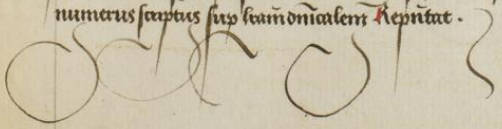 numerus scriptus sup lr̄am dn̄icalem Rep̄n̄tat .